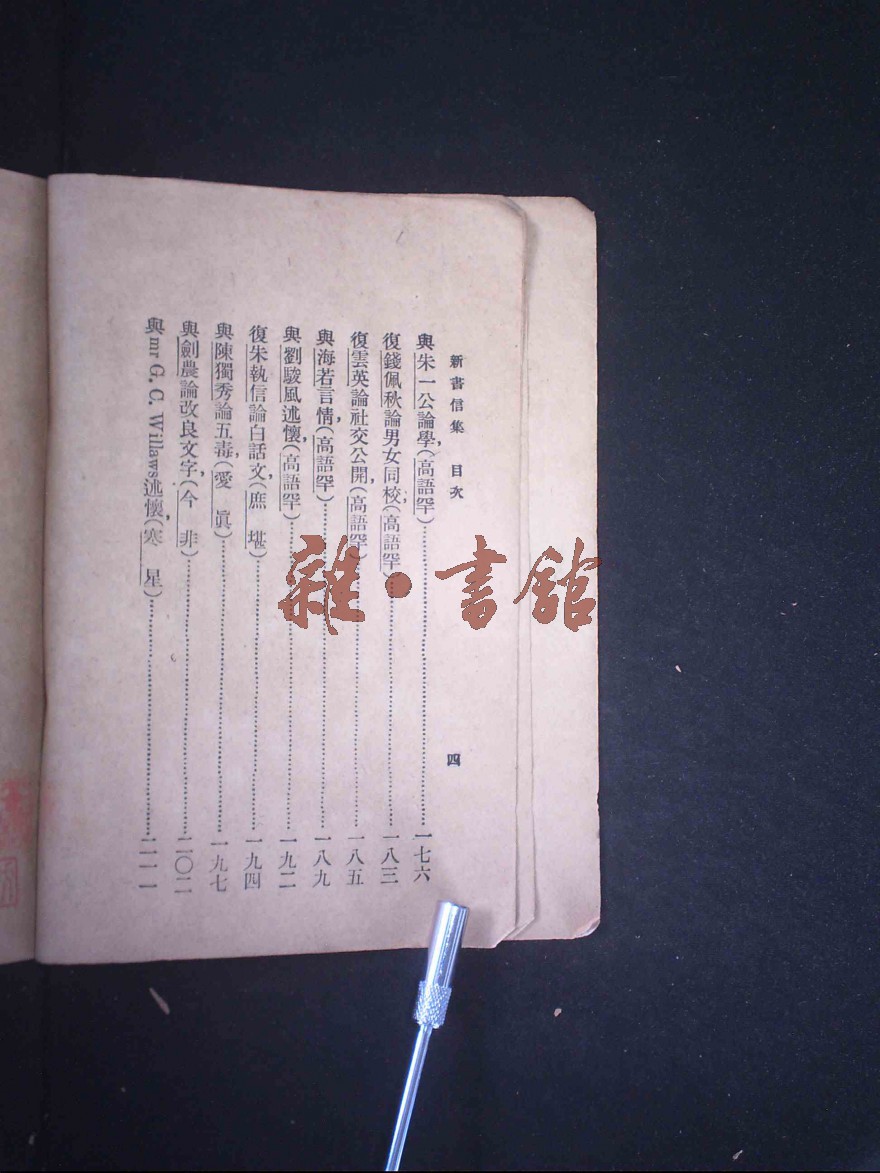 新書信集 目次
四
與朱一公論學，(高語罕)……一七六
復錢佩秋論男女同校，(高語罕)……一八三
復雲英論社交公開，(高語罕)……一八五
與海若言情，(高語罕)……一八九
與劉駿風述懷，(高語罕)……一九二
復朱執信論白話文，(庶堪)……一九四
與陳獨秀論五毒，(愛眞)……一九七
與劍農論改良文字，(今非)……二〇二
與mr G. C. Willaws述懷，(寒星)……二一一
雜·書館